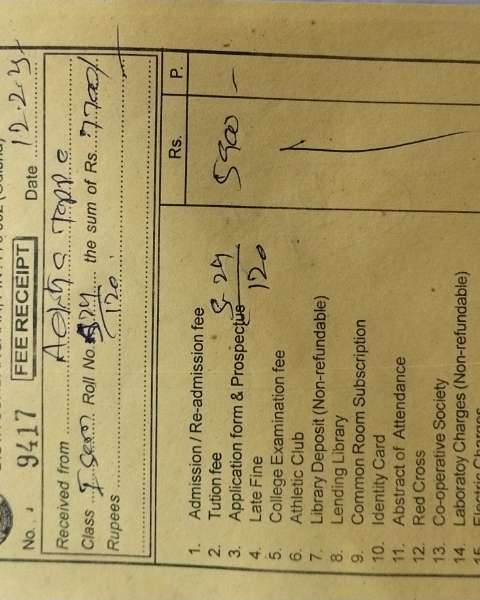 No. 9417 FEE RECEIPT Date 12.2.24
Received from
Class I Sem Roll No. 24 the sum of Rs. 7700/-
120
Rupees
Rs. P.
1. Admission / Re-admission fee
2. Tution fee 5900 —
3. Application form & Prospectus
S 24
120
4. Late Fine
5. College Examination fee
6. Athletic Club
7. Library Deposit (Non-refundable)
8. Lending Library
9. Common Room Subscription
10. Identity Card
11. Abstract of Attendance
12. Red Cross
13. Co-operative Society
14. Laboratoy Charges (Non-refundable)
15. Electric Charges